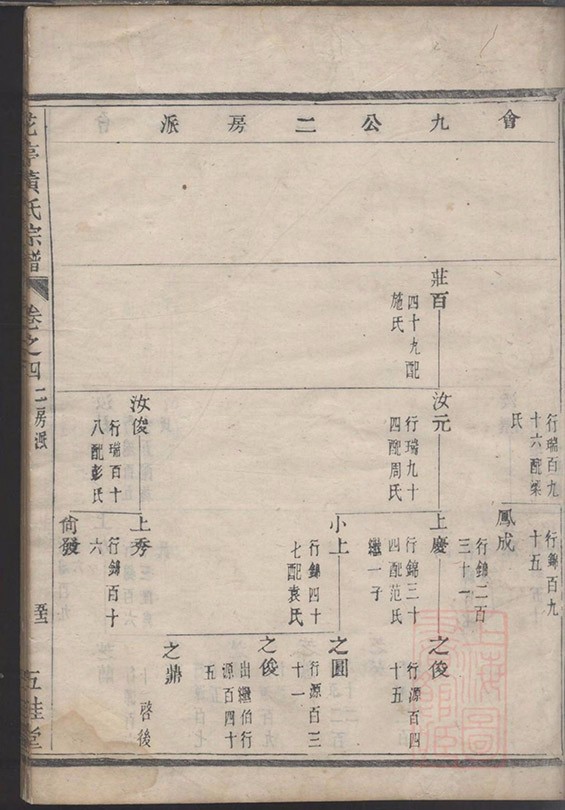 會九公二房派
行瑞百九
十六配梁
氏
行錦百九
十五
鳳成
行錦二百
三十一
莊百
四十九配
施氏
汝元
行瑞九十
四配周氏
上慶
行錦三十
四配范氏
繼一子
之俊
行源百四
十五
小上
行錦四十
七配袁氏
之圓
行源百三
十一
之俊
出繼伯行
源百四十
五
之鼎
啓後
汝俊
行瑞百十
八配彭氏
上秀
行錦百十
六
尙發
花亭黃氏宗譜
卷之四
二房派
五桂堂